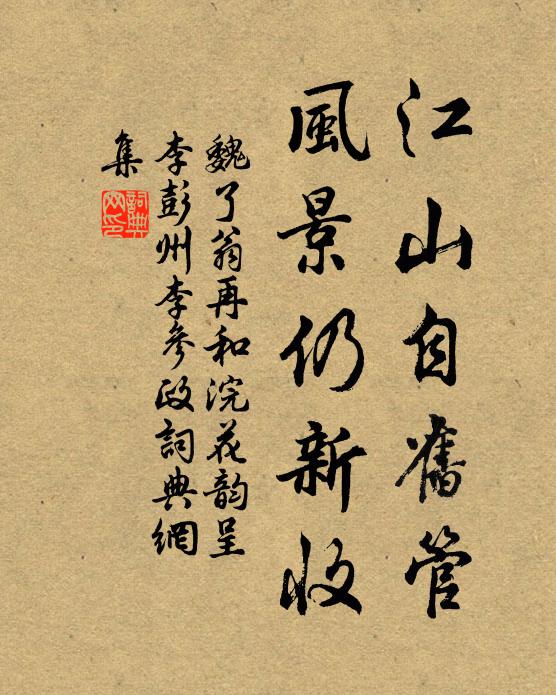 江山自舊管
風景仍新收
魏了翁再和浣花韵呈
李彭州李參政詞典網
集
詞典网印